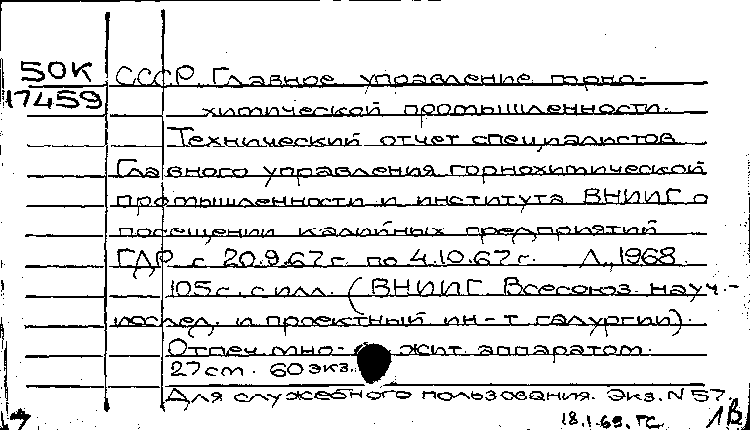 50К СССР. Главное управление горно-
17459 химической промышленности.
Технический отчет специалистов
Главного управления горнохимической
промышленности и института ВНИИГ о
посещении калийных предприятий
ГДР с 20.9.67г. по 4.10.67г. Л., 1968.
105с. с илл. (ВНИИГ. Всесоюз. науч.-
исслед. и проектный ин-т галургии).
Отпеч. мно- жит. аппаратом.
27см. 60экз.
Для служебного пользования. Экз. N 57.
18.1.69. ГС. 1В